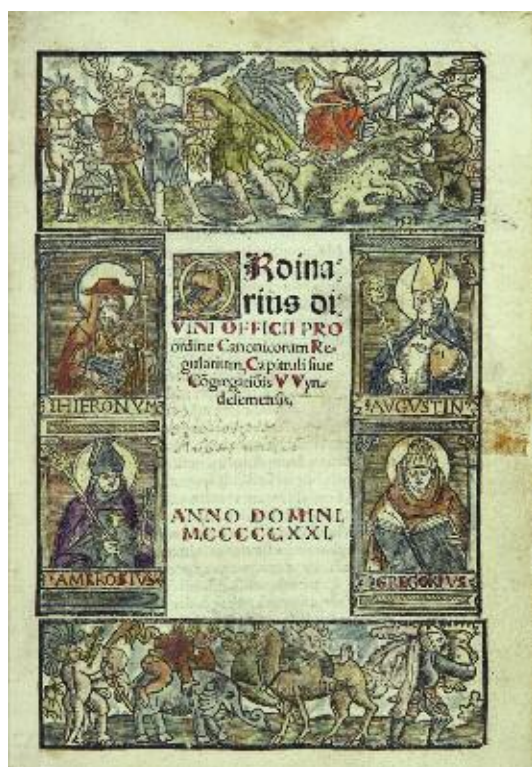 ORdina⸗
rius di⸗
VINI OFFICII PRO
ordine Canonicorum Re-
gularium, Capituli siue
Cõgregatiõis VVyn-
desemensis.
ANNO DOMINI.
MCCCCCXXI.
HIERONYM
AVGVSTIN
AMBROSIVS
GREGORIVS